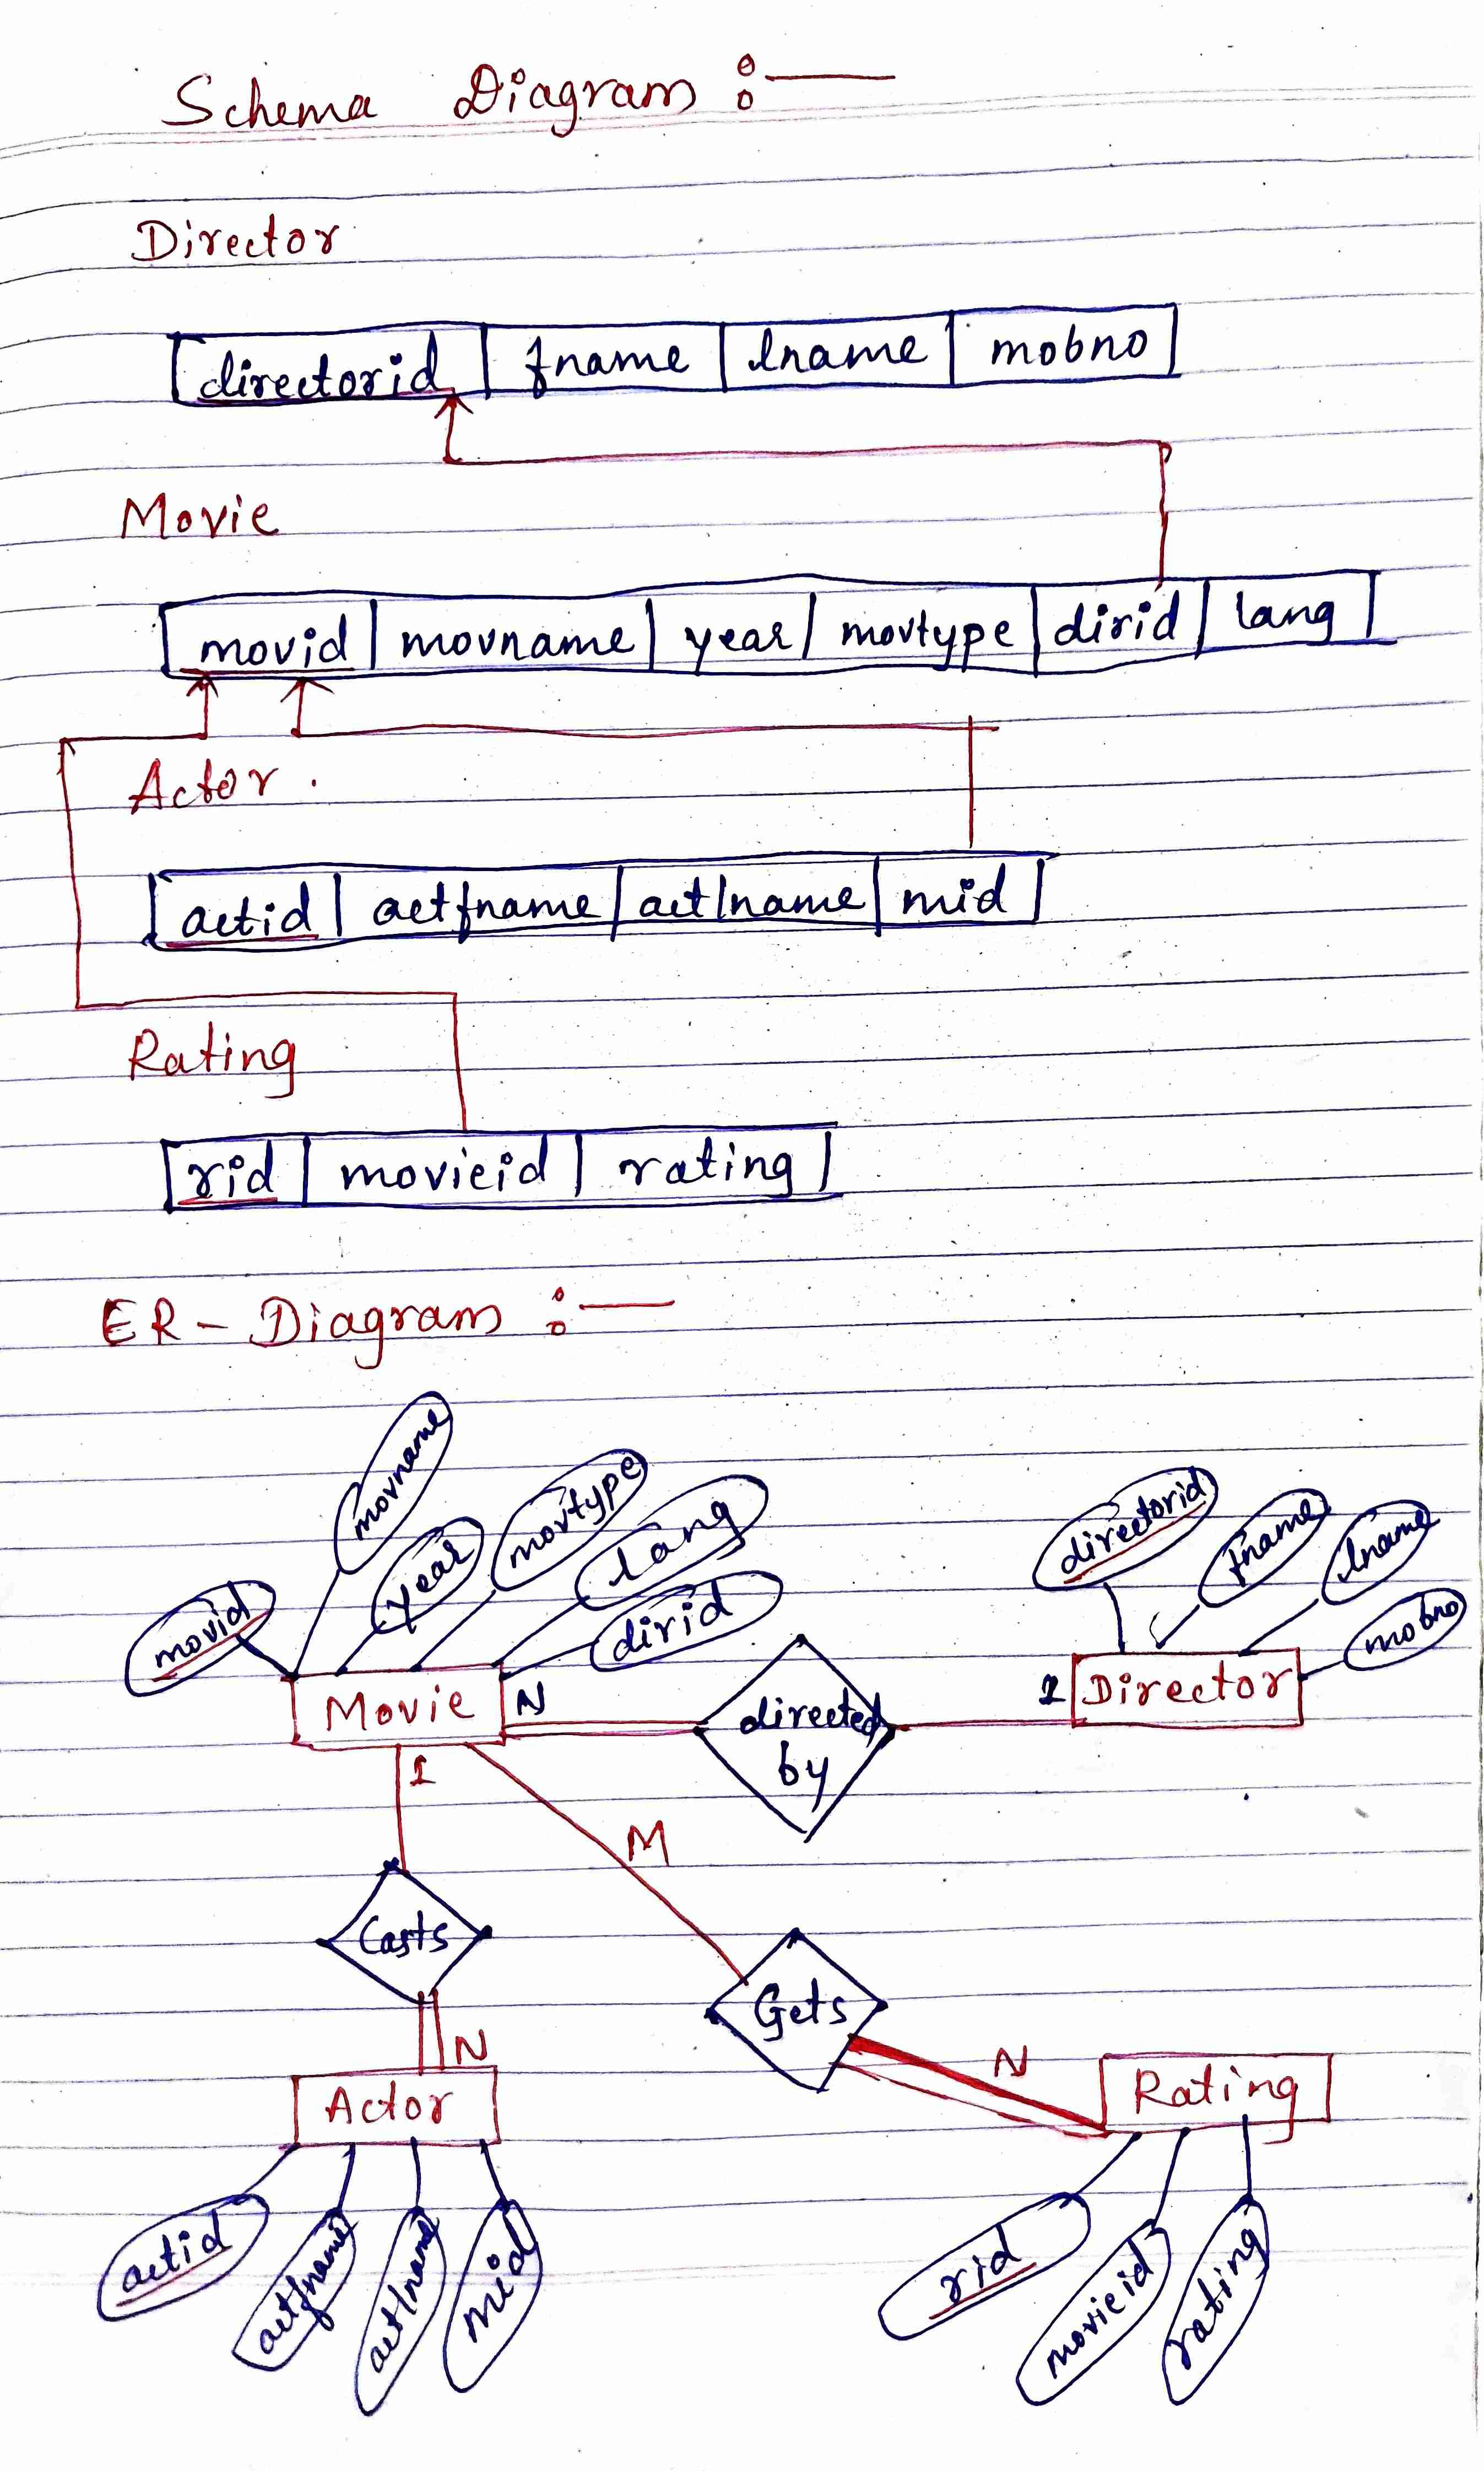 Schema Diagram :—
Director
directorid fname lname mobno
Movie
movid movname year movtype dirid lang
Actor .
actid actfname actlname mid
Rating
rid movieid rating
ER - Diagram :—
movname
movtype
year
lang
movid
dirid
directorid
fname
lname
mobno
Movie N directed by 1 Director
1
M
Casts
Gets
N
N
Actor
Rating
actid
actfname
actlname
mid
rid
movieid
rating